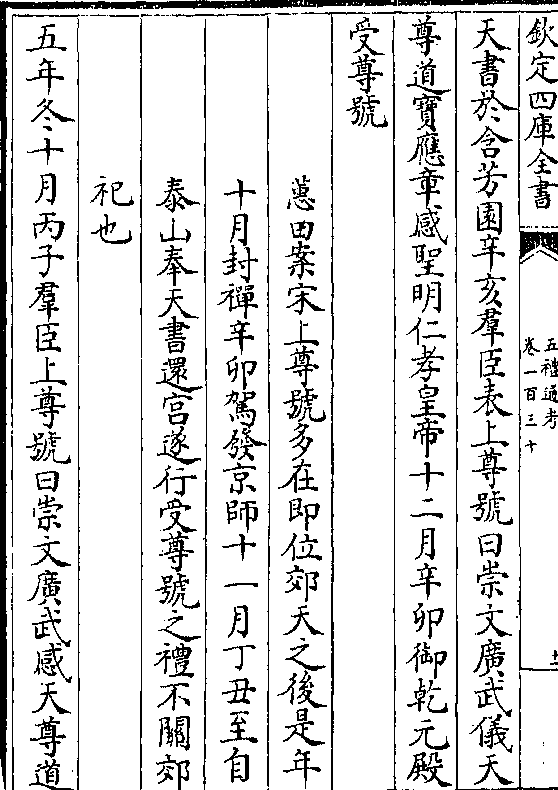 欽定四庫全書
五禮通考
卷一百三十
十二
天書於含芳園辛亥羣臣表上尊號曰崇文廣武儀天
尊道寶應章感聖明仁孝皇帝十二月辛卯御乾元殿
受尊號
蕙田案宋上尊號多在即位郊天之後是年
十月封禪辛卯駕發京師十一月丁丑至自
泰山奉天書還宫遂行受尊號之禮不關郊
祀也
五年冬十月丙子羣臣上尊號曰崇文廣武感天尊道